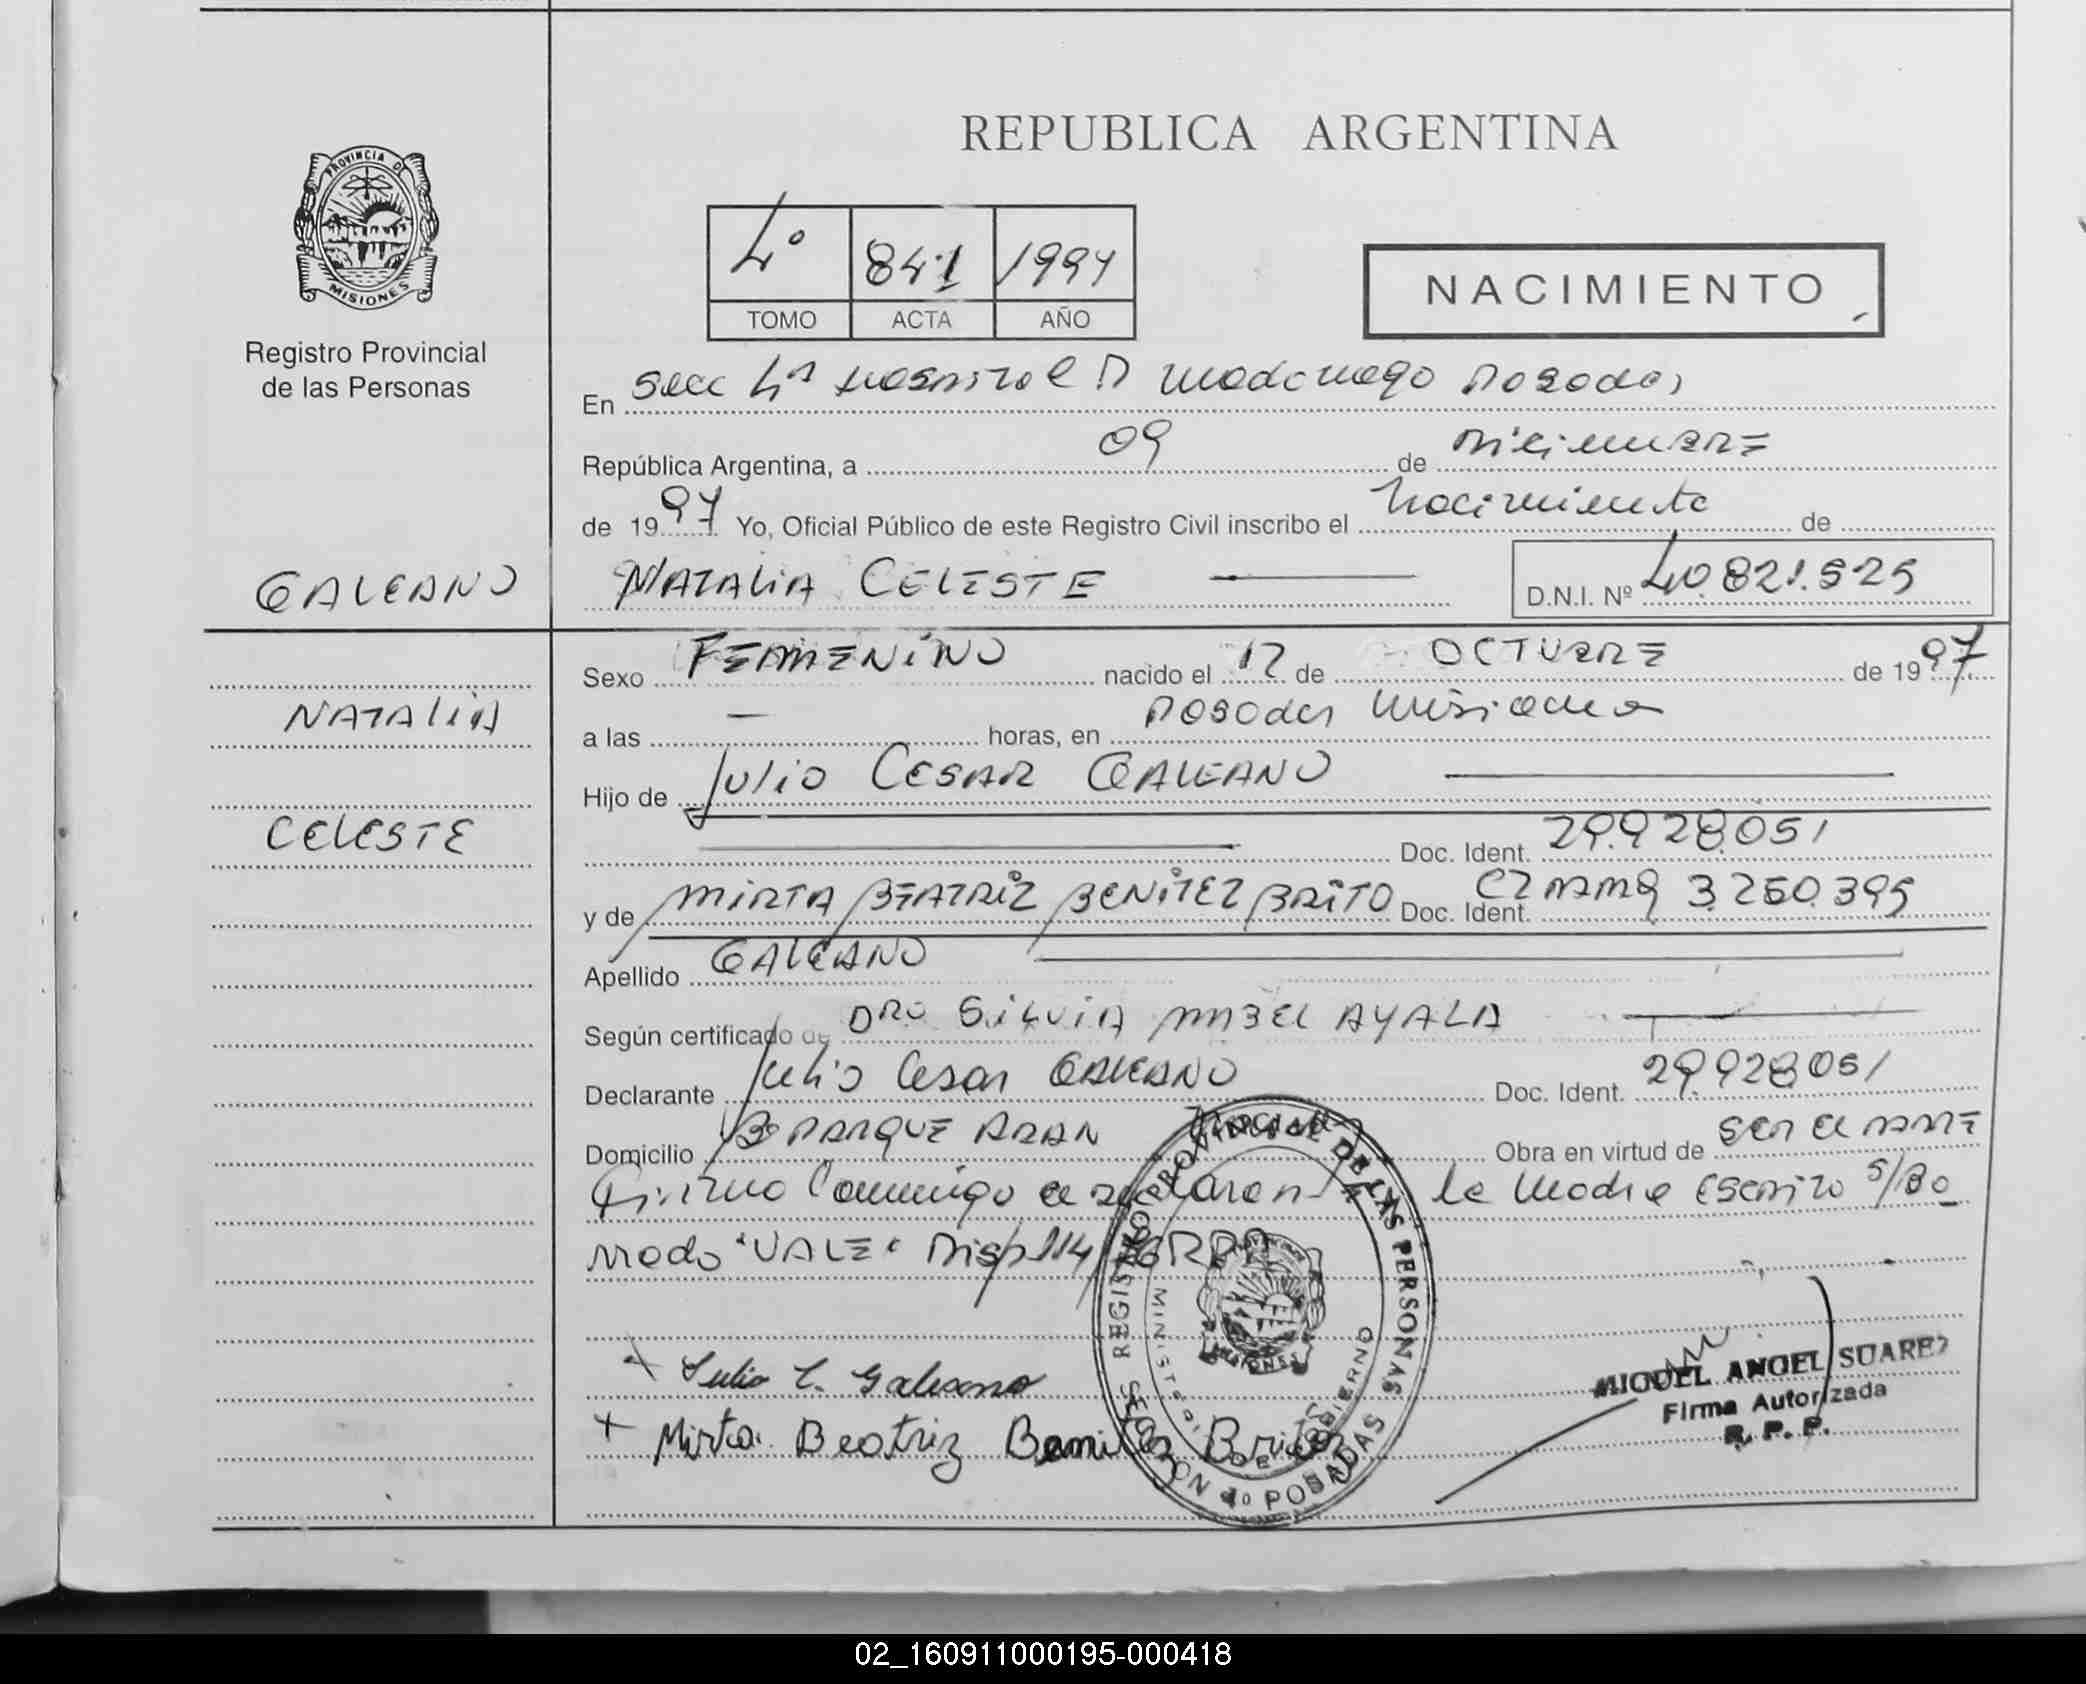 REPUBLICA ARGENTINA
PROVINCIA DE
MISIONES
Registro Provincial
de las Personas
4º 841 1997
TOMO ACTA AÑO
NACIMIENTO
En Secc 4ª Hospital R Madariaga Posadas
República Argentina, a 09 de Diciembre
de 1997 Yo, Oficial Público de este Registro Civil inscribo el Nacimiento de
GALEANO
NATALIA CELESTE
D.N.I. Nº 40.821.525
NATALIA
CELESTE
Sexo FEMENINO nacido el 12 de OCTUBRE de 1997
a las — horas, en Posadas Misiones
Hijo de Julio CESAR GALEANO
Doc. Ident. 29.928.051
y de MIRTA BEATRIZ BENITEZ BRITO Doc. Ident. 3.260.395
Apellido GALEANO
Según certificado de DRA SILVIA MABEL AYALA
Declarante Julio Cesar GALEANO Doc. Ident. 29.928.051
Domicilio Bº PARQUE ADAN Obra en virtud de ser el PADRE
Firma Conmigo el declarante y la Madre Escrito S/Bo
rrado "VALE" Disp 114/ GRPP
REGISTRO PROVINCIAL DE LAS PERSONAS
MINISTERIO DE GOBIERNO
MISIONES
SECCION 4º POSADAS
x Julio C. Galeano
x Mirta Beatriz Benitez Brito
MIGUEL ANGEL SUAREZ
Firma Autorizada
R. P. P.
02_160911000195-000418